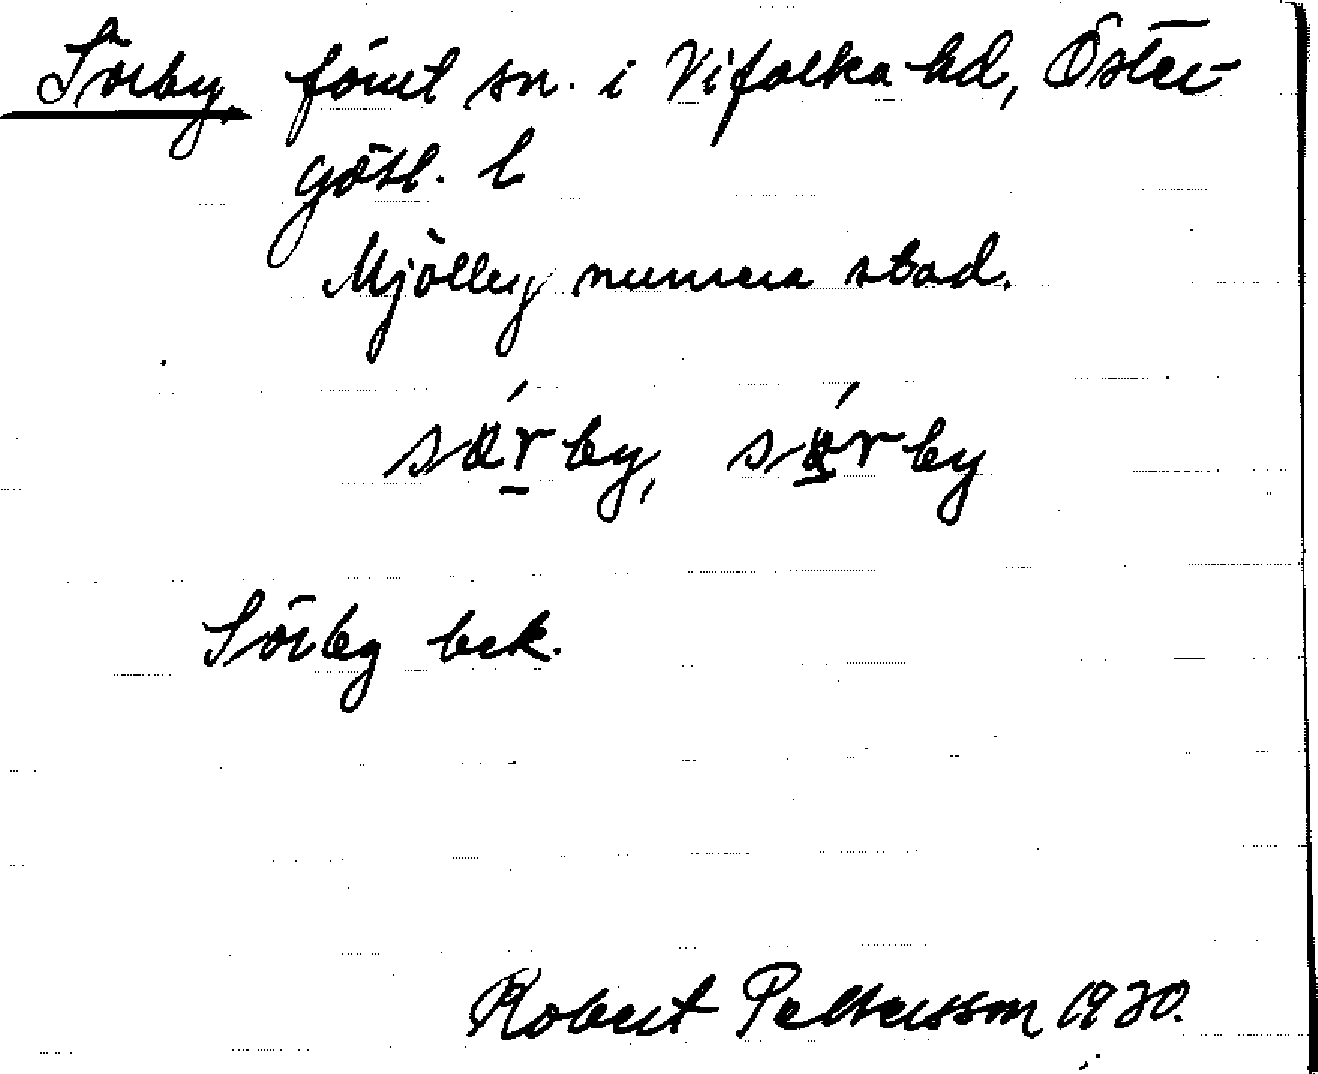 Sörby, förut sn. i Vifolka hd, Öster-
götl. l
Mjölby numera stad.
särby, särby
Sörby bek.
Robert Pettersson 1930.